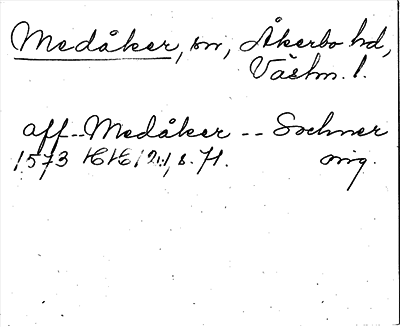 Medåker, sn, Åkerbo hd,
Västm. l.
aff -- Medåker -- Sochner
1573 s. 71. orig.